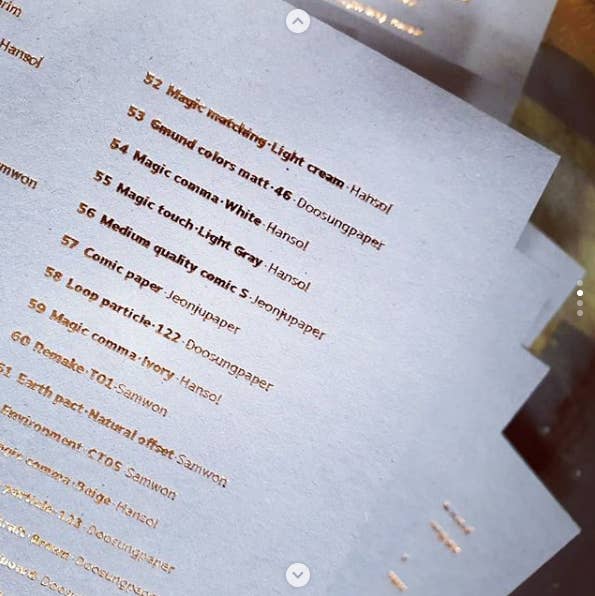 Hansol
52 Magic matching·Light cream·Hansol
53 Gmund colors matt·46·Doosungpaper
54 Magic comma·White·Hansol
55 Magic touch·Light Gray·Hansol
56 Medium quality comic S·Jeonjupaper
57 Comic paper·Jeonjupaper
58 Loop particle·122·Doosungpaper
59 Magic comma·Ivory·Hansol
60 Remake·T01·Samwon
61 Earth pact·Natural offset·Samwon
Environment·CT05·Samwon
comma·Beige·Hansol
particle·123·Doosungpaper
Brown·Doosungpaper